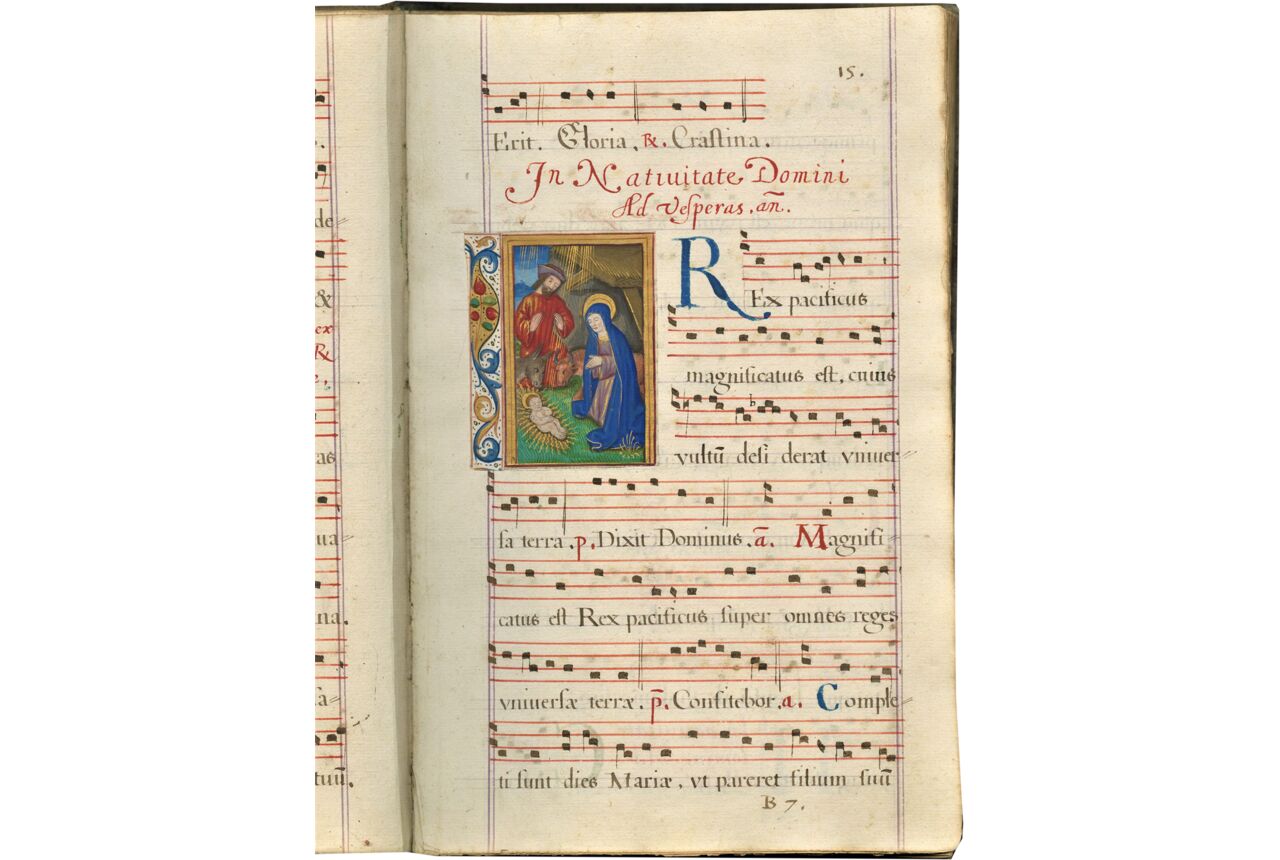 15.
Erit. Gloria. ℟. Craſtina.
In Natiuitate Domini
Ad Veſperas. an̄.
REx pacificus
magnificatus eſt, cuius
vultū deſi derat vniuer-
ſa terra. p. Dixit Dominus. ā. Magnifi-
catus eſt Rex pacificus ſuper omnes reges
vniuerſæ terræ. p̄. Confitebor. a. Comple-
ti ſunt dies Mariæ, vt pareret filium ſuū
B 7.
de-
&
ex
℟
as
ua-
na.
ſa-
tuū.